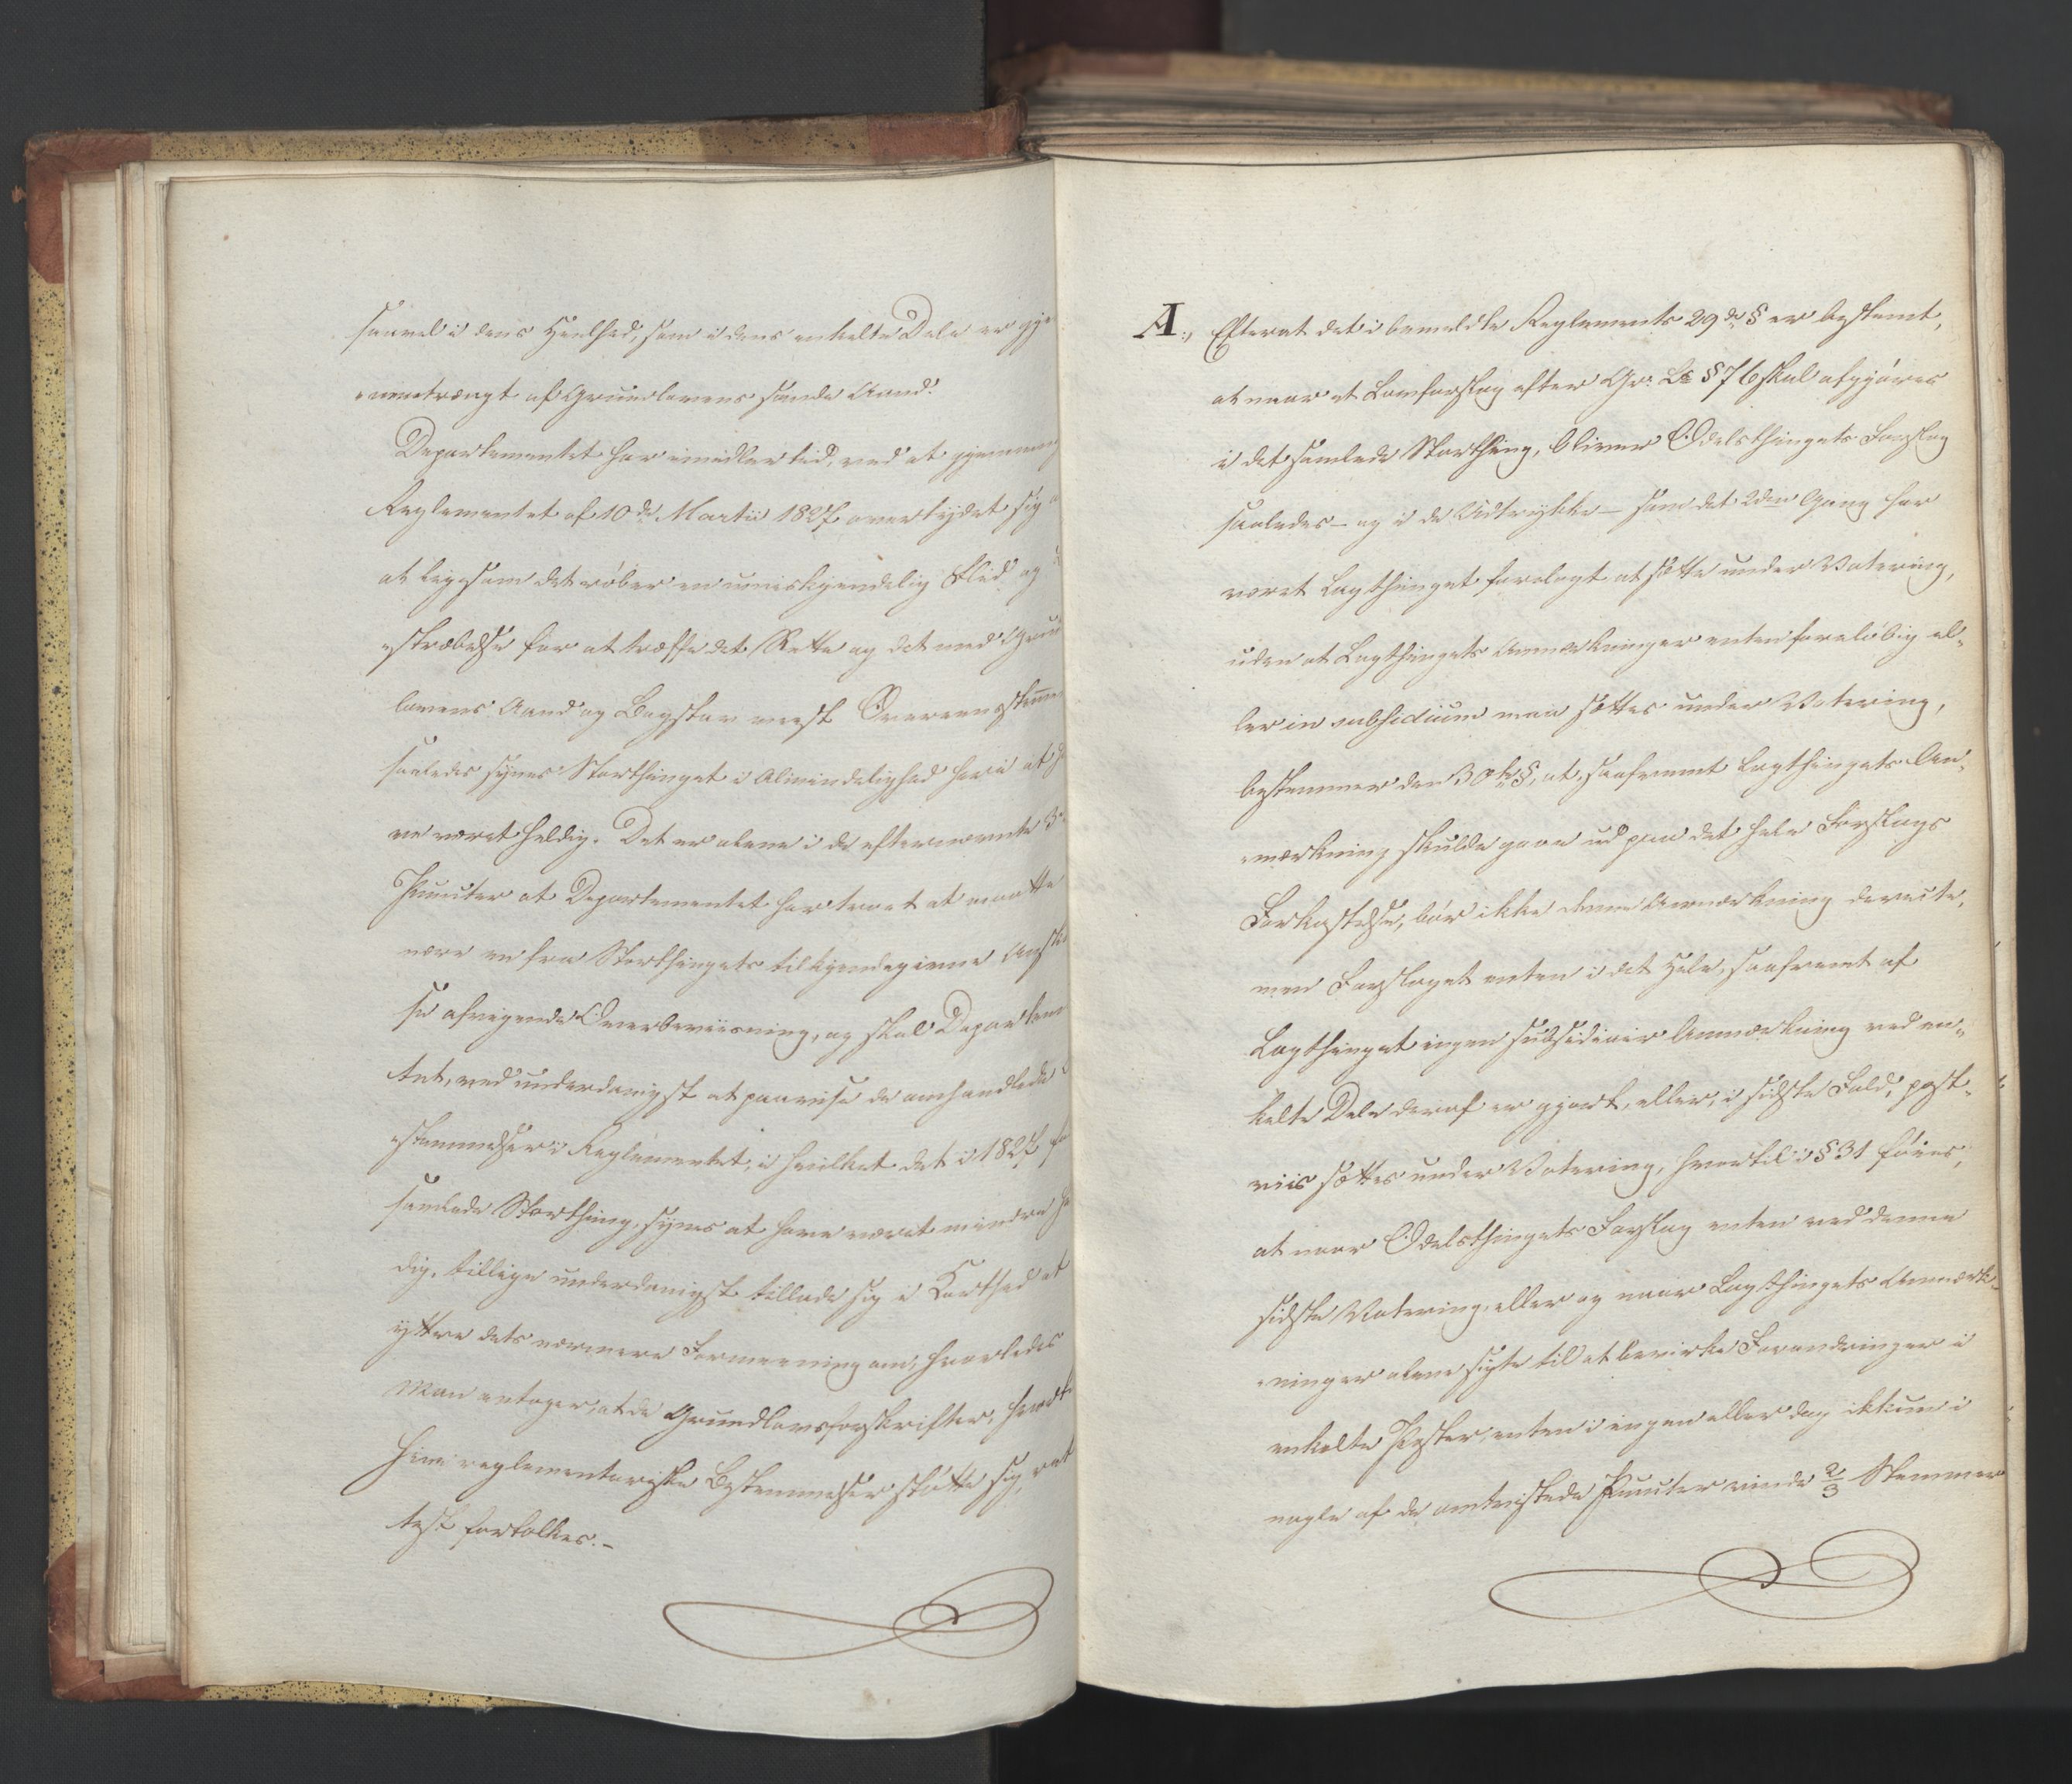 saavel i dens Heelhed, som i dens enkelte Dele er gje
nemtrængt af Grundlovens sande Aand.
Departementet har imidlertid, ved at gjennem
Reglementet af 10de Martii 1827 overtydet sig
at ligesom det røber en umiskjendelig Flid og
stræbelse for at træffe det Rette og det med Grund
lovens Aand og Bogstav meest Overeensstemme
saaledes synes Storthinget i Almindelighed heri at ha
ve været heldig. Det er alene i de efternævnte 3
Puncter at Departementet har troet at maatte
nære en fra Storthingets tilkjendegivne Ansku
se afvigende Overbeviisning, og skal Departemen
tet, ved underdanigst at paavise de omhandlede
stemmelser i Reglementet, i hvilket det i 1827 for
samlede Storthing, synes at have været mindre hel
dig, tillige underdanigst tillade sig i Korthed at
yttre dets nærmere Formeening om, hvorledes
Man antager, at de Grundlovsforskrifter, hvortil
hine reglementariske Bestemmelser støtte sig, ret
test fortolkes.-
A., Efterat det i bemeldte Reglements 29de § er bestemt,
at naar et Lovforslag efter Gr: Ls § 76 skal afgjøres
i det samlede Storthing, bliver Odelsthingets Forslag
saaledes - og i de Udtrykke - som det 2den Gang har
været Lagthinget forelagt at sætte under Votering,
uden at Lagthingets Anmærkninger enten foreløbig el-
ler in subsidium maa sættes under Votering,
bestemmer den 30te §, at, saafremt Lagthingets An-
mærkning skulde gaae ud paa det hele Forslags
Forkastelse, bør ikke denne Anmærkning derefter,
men Forslaget enten i det Hele, saafremt af
Lagthinget ingen subsidiair Anmærkning ved en-
kelte Dele deraf er gjort, eller, i sidste Fald, post-
viis sættes under Votering, hvortil i § 31 føies,
at naar Odelsthingets Forslag enten ved denne
sidste Votering, eller og naar Lagthingets Anmærk-
ninger alene sigte til at bevirke Forandringer i
enkelte Poster, enten i ingen eller dog ikkun i
nogle af de omtvistede Puncter vinde 2/3 Stemmer